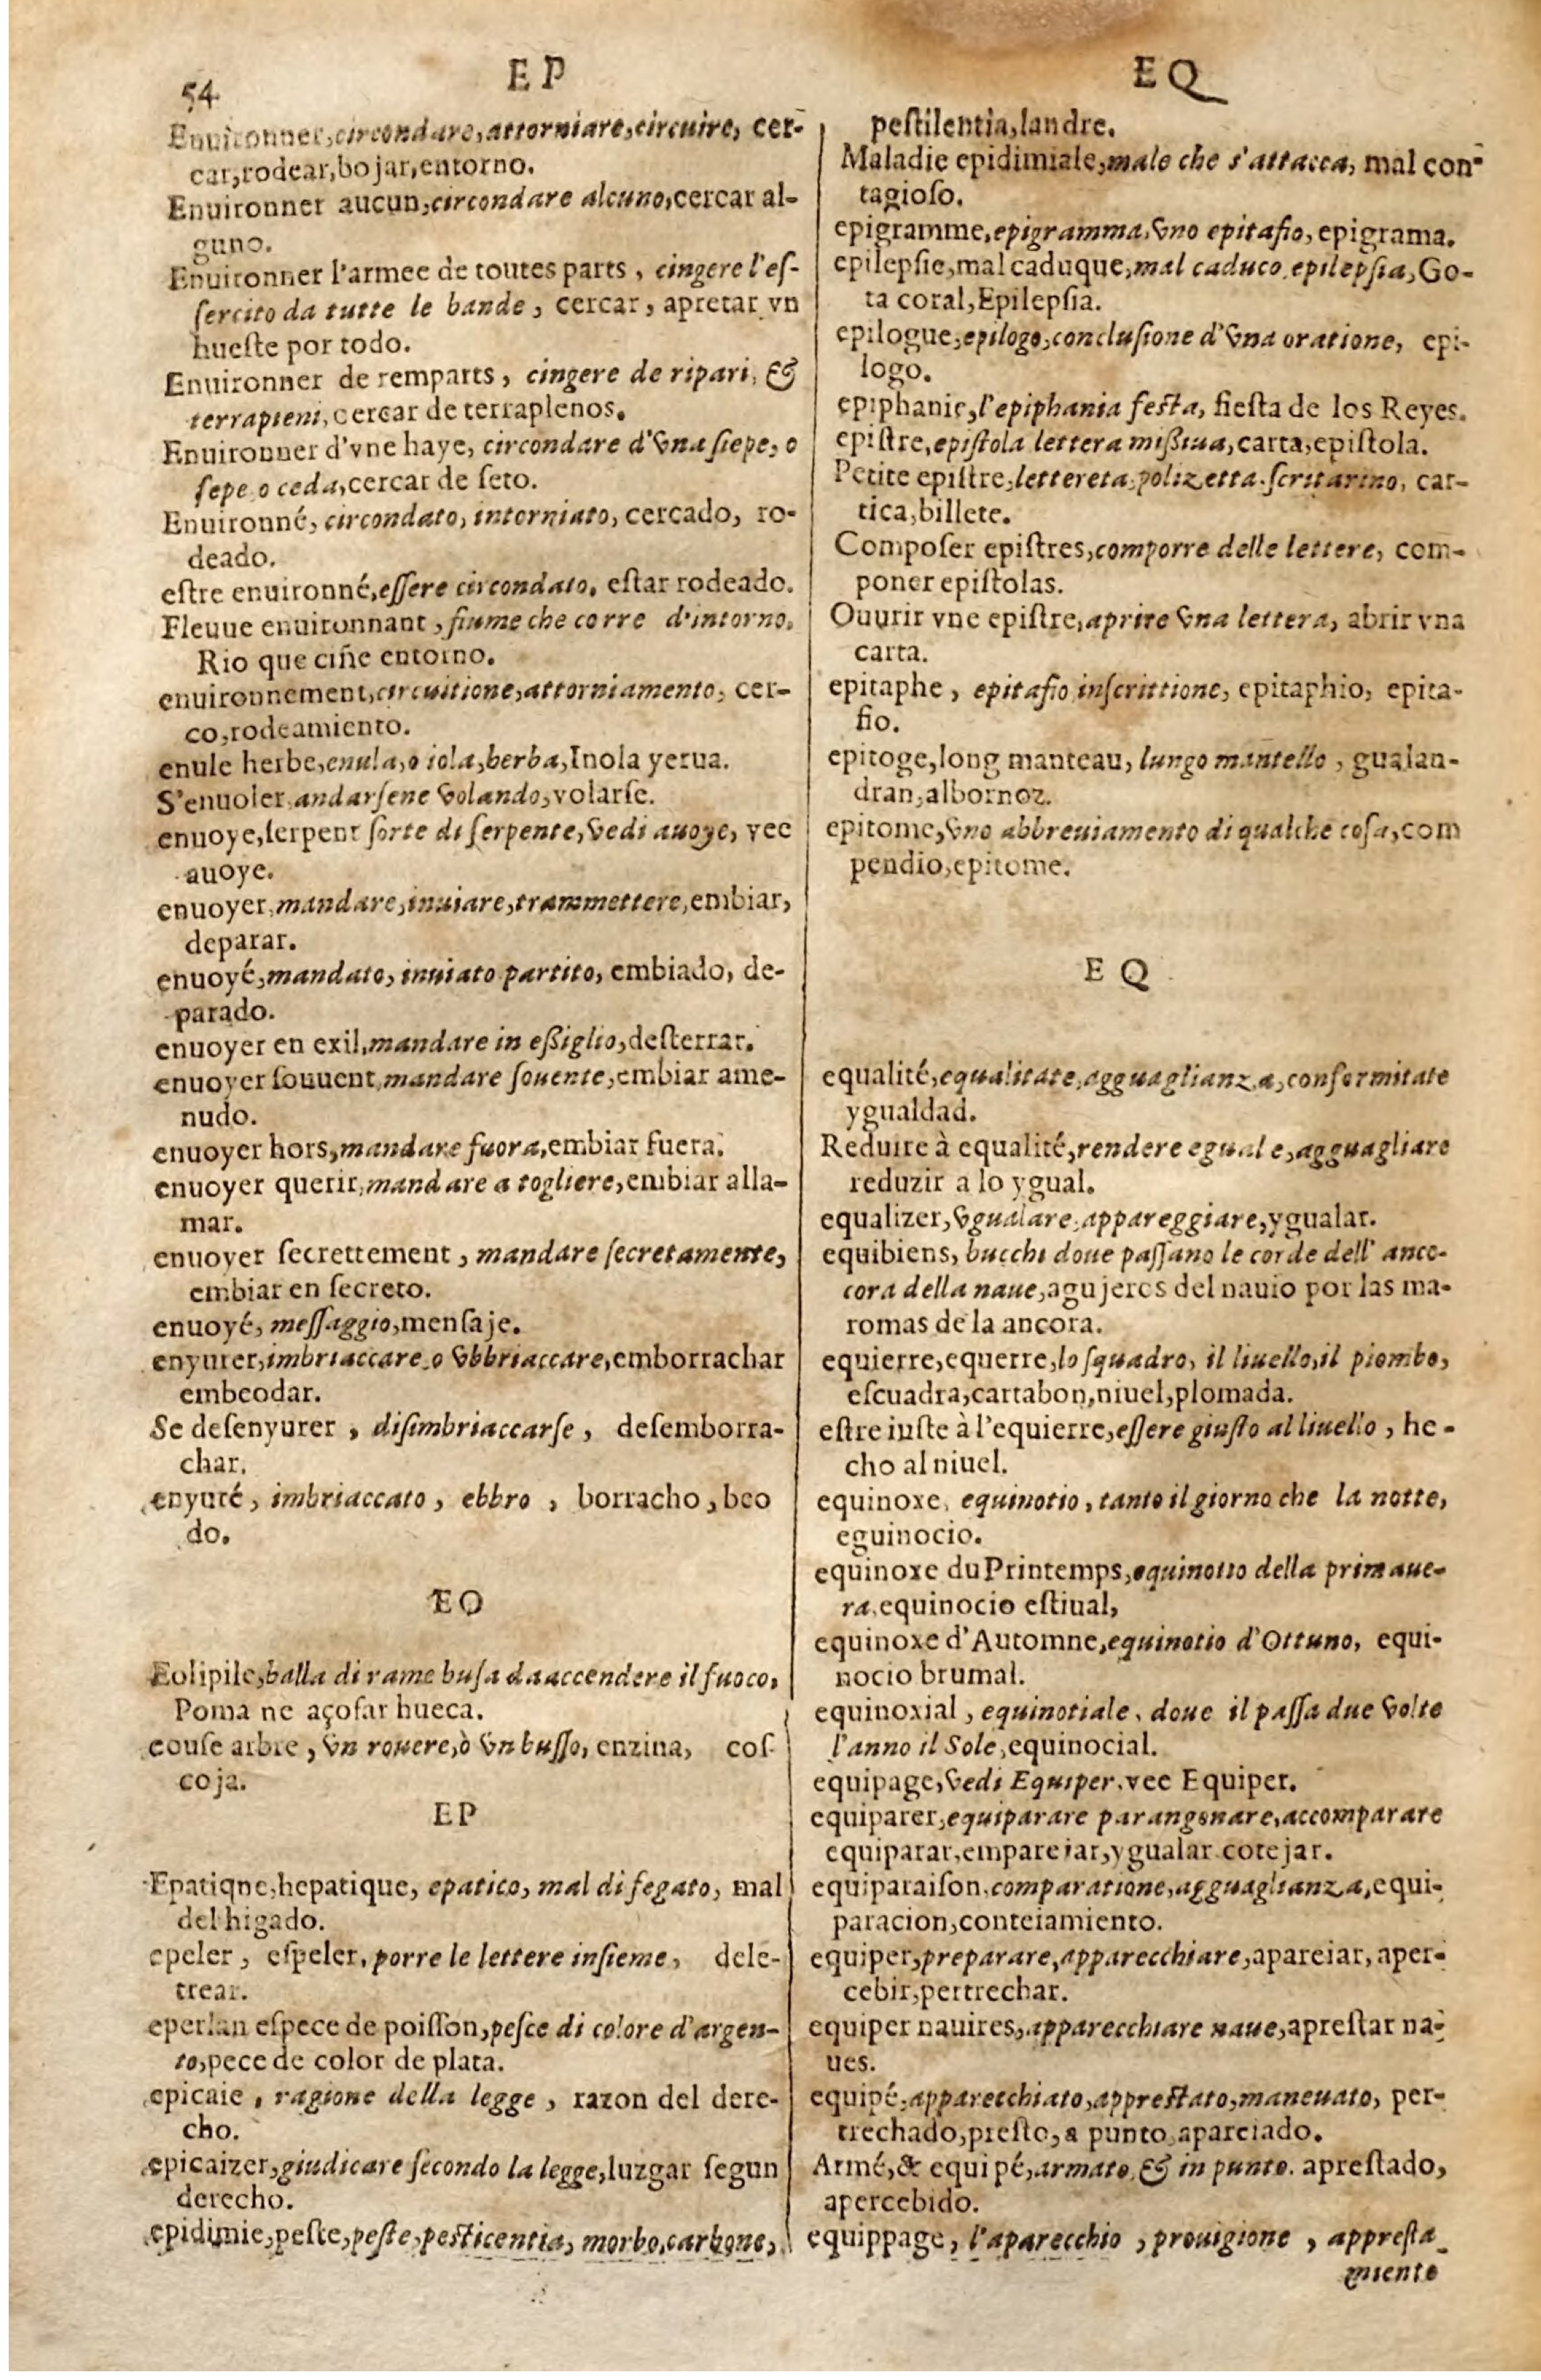 54
EP
EQ
Enuironner, circondare, attorniare, circuire, cer-
car, rodear, bojar, entorno.
Enuironner aucun, circondare alcuno, cercar al-
guno.
Enuironner l'armee de toutes parts, cingere l'es-
ſercito da tutte le bande, cercar, apretar vn
hueſte por todo.
Enuironner de remparts, cingere de ripari, &
terrapieni, cercar de terraplenos.
Enuironner d'vne haye, circondare d'vna ſiepe, o
ſepe o ceda, cercar de ſeto.
Enuironné, circondato, intorniato, cercado, ro-
deado.
eſtre enuironné, eſſere circondato, eſtar rodeado.
Fleuue enuironnant, fiume che corre d'intorno,
Rio que ciñe entorno.
enuironnement, circuitione, attorniamento, cer-
co, rodeamiento.
enule herbe, enula, o iola, herba, Inola yerua.
S'enuoler, andarſene volando, volarſe.
enuoye, ſerpent ſorte di ſerpente, vedi auoye, vee
auoye.
enuoyer, mandare, inuiare, trammettere, embiar,
deparar.
enuoyé, mandato, inuiato partito, embiado, de-
parado.
enuoyer en exil, mandare in eßiglio, deſterrar.
enuoyer ſouuent, mandare ſouente, embiar ame-
nudo.
enuoyer hors, mandare fuora, embiar fuera.
enuoyer querir, mandare a togliere, embiar alla-
mar.
enuoyer ſecrettement, mandare ſecretamente,
embiar en ſecreto.
enuoyé, meſſaggio, menſaje.
enyurer, imbriaccare, o vbbriaccare, emborrachar
embeodar.
Se deſenyurer, diſimbriaccarſe, deſemborra-
char.
enyuré, imbriaccato, ebbro, borracho, beo
do.
EO
Eolipile, balla di rame buſa da accendere il fuoco,
Poma ne açofar hueca.
eouſe arbre, vn rouere, ò vn buſſo, enzina, coſ
coja.
EP
Epatique, hepatique, epatico, mal di fegato, mal
del higado.
epeler, eſpeler, porre le lettere inſieme, dele-
trear.
eperlan eſpece de poiſſon, peſce di colore d'argen-
to, pece de color de plata.
epicaie, ragione della legge, razon del dere-
cho.
epicaizer, giudicare ſecondo la legge, luzgar ſegun
derecho.
epidimie, peſte, peſte, peſticentia, morbo, carbone,
peſtilentia, landre.
Maladie epidimiale, male che s'attacca, mal con-
tagioſo.
epigramme, epigramma, vno epitafio, epigrama.
epilepſie, mal caduque, mal caduco, epilepſia, Go-
ta coral, Epilepſia.
epilogue, epilogo, concluſione d'vna oratione, epi-
logo.
epiphanie, l'epiphania feſta, fieſta de los Reyes.
epiſtre, epiſtola lettera mißiua, carta, epiſtola.
Petite epiſtre, lettereta, polizetta, ſcritarino, car-
tica, billete.
Compoſer epiſtres, comporre delle lettere, com-
poner epiſtolas.
Ouurir vne epiſtre, aprire vna lettera, abrir vna
carta.
epitaphe, epitafio inſcrittione, epitaphio, epita-
fio.
epitoge, long manteau, lungo mantello, gualan-
dran, albornoz.
epitome, vno abbreuiamento di qualche coſa, com
pendio, epitome.
EQ
equalité, equalitate, agguaglianza, conformitate
ygualdad.
Reduire à equalité, rendere eguale, agguagliare
reduzir a lo ygual.
equalizer, vgualare, appareggiare, ygualar.
equibiens, bucchi doue paſſano le corde dell' ance-
cora della naue, agujeros del nauio por las ma-
romas de la ancora.
equierre, equerre, lo ſquadro, il liuello, il piombo,
eſcuadra, cartabon, niuel, plomada.
eſtre iuſte à l'equierre, eſſere giuſto al liuello, he-
cho al niuel.
equinoxe, equinotio, tanto il giorno che la notte,
eguinocio.
equinoxe du Printemps, equinotio della primaue-
ra, equinocio eſtiual,
equinoxe d'Automne, equinotio d'Ottuno, equi-
nocio brumal.
equinoxial, equinotiale, doue il paſſa due volte
l'anno il Sole, equinocial.
equipage, vedi Equiper. vee Equiper.
equiparer, equiparare parangonare, accomparare
equiparar, empareiar, ygualar cotejar.
equiparaiſon, comparatione, agguaglianza, equi-
paracion, conteiamiento.
equiper, preparare, apparecchiare, apareiar, aper-
cebir, pertrechar.
equiper nauires, apparecchiare naue, apreſtar na-
ues.
equipé, apparecchiato, appreſtato, maneuato, per-
trechado, preſto, a punto apareiado.
Armé, & equipé, armato, & in punto. apreſtado,
apercebido.
equippage, l'aparecchio, prouigione, appreſta-
miento